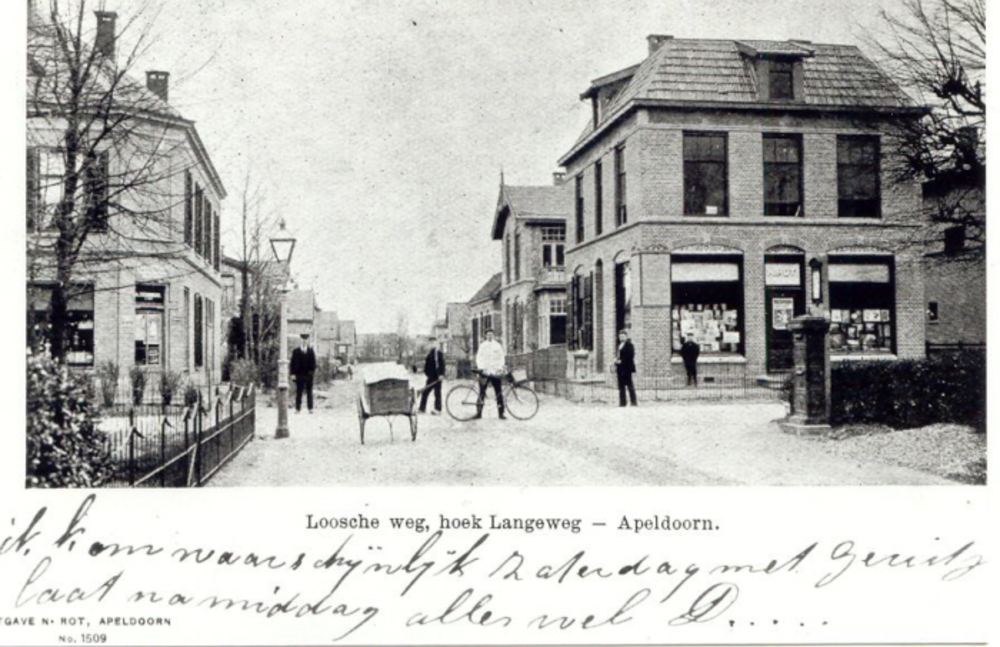 Loosche weg, hoek Langeweg — Apeldoorn.
ik kom waarschÿnlÿk Zaterdag met Gerrit
laat namiddag alles wel D.....
TGAVE N. ROT, APELDOORN
No. 1509